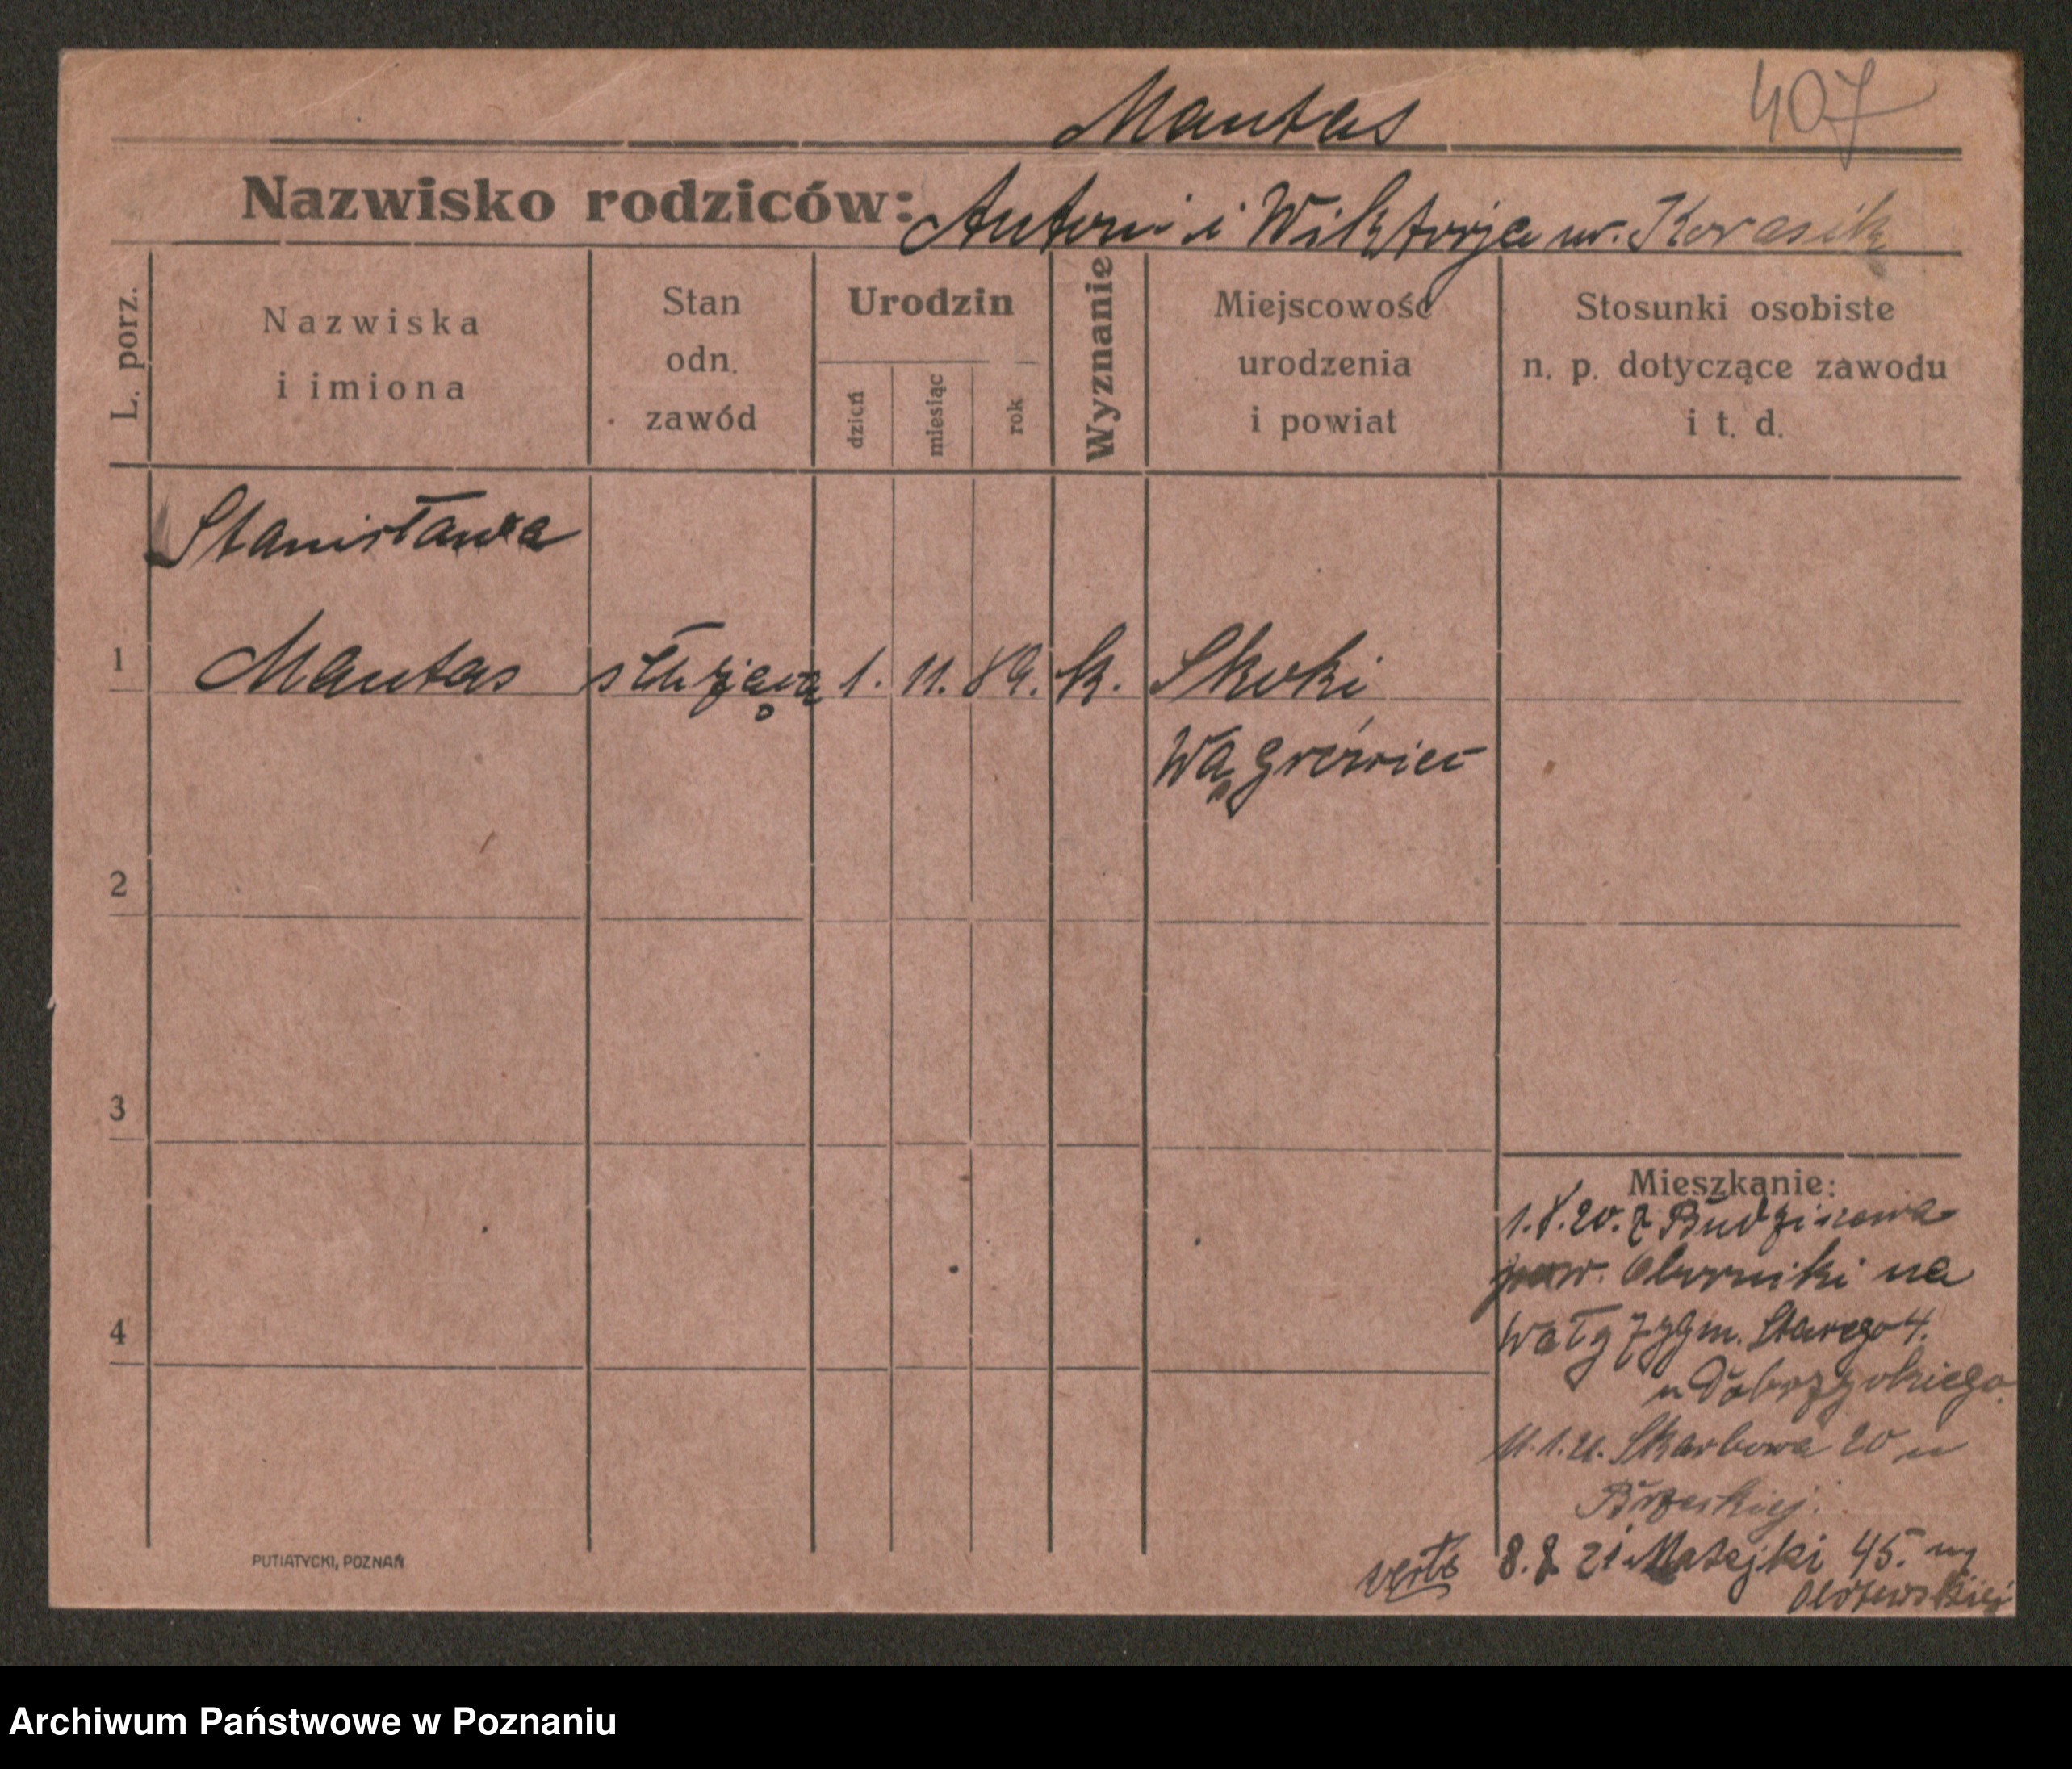 Mantas
407
Nazwisko rodziców: Antoni i Wiktorja ur. Korasik
L. porz.
Nazwiska
i imiona
Stan
odn.
zawód
Urodzin
dzień
miesiąc
rok
Wyznanie
Miejscowość
urodzenia
i powiat
Stosunki osobiste
n. p. dotyczące zawodu
i t. d.
Stanisława
1 Mantas służąca 1. 11. 89. k. Skoki
Wągrówiec
2
3
Mieszkanie:
1.8.20. z Budziszewa
pow. Oborniki na
4
Wały Zygm. Starego 4.
u
11.1.21. Skarbowa 20 u
Brzeskiej.
verte 8.8 21 Matejki 45.
PUTIATYCKI, POZNAŃ
Archiwum Państwowe w Poznaniu